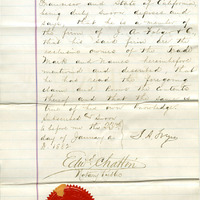 Francisco and State of California
being duly sworn deposes and
says that he is a member of
the firm of J. A. Folger & Co
that his said firm are the
exclusive owners of the Trade
Mark and Names hereinbefore
mentioned and described that
he has read the foregoing
claim and knows the contents
thereof and that the same is
true of his own knowledge.
Subscribed & Sworn
to before me this 25th
day of January A.
D. 1882
J. A. Folger
Notary Public